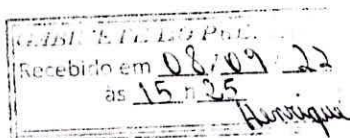 Recebido em 08/09/22
às 15 h 25
Henrique